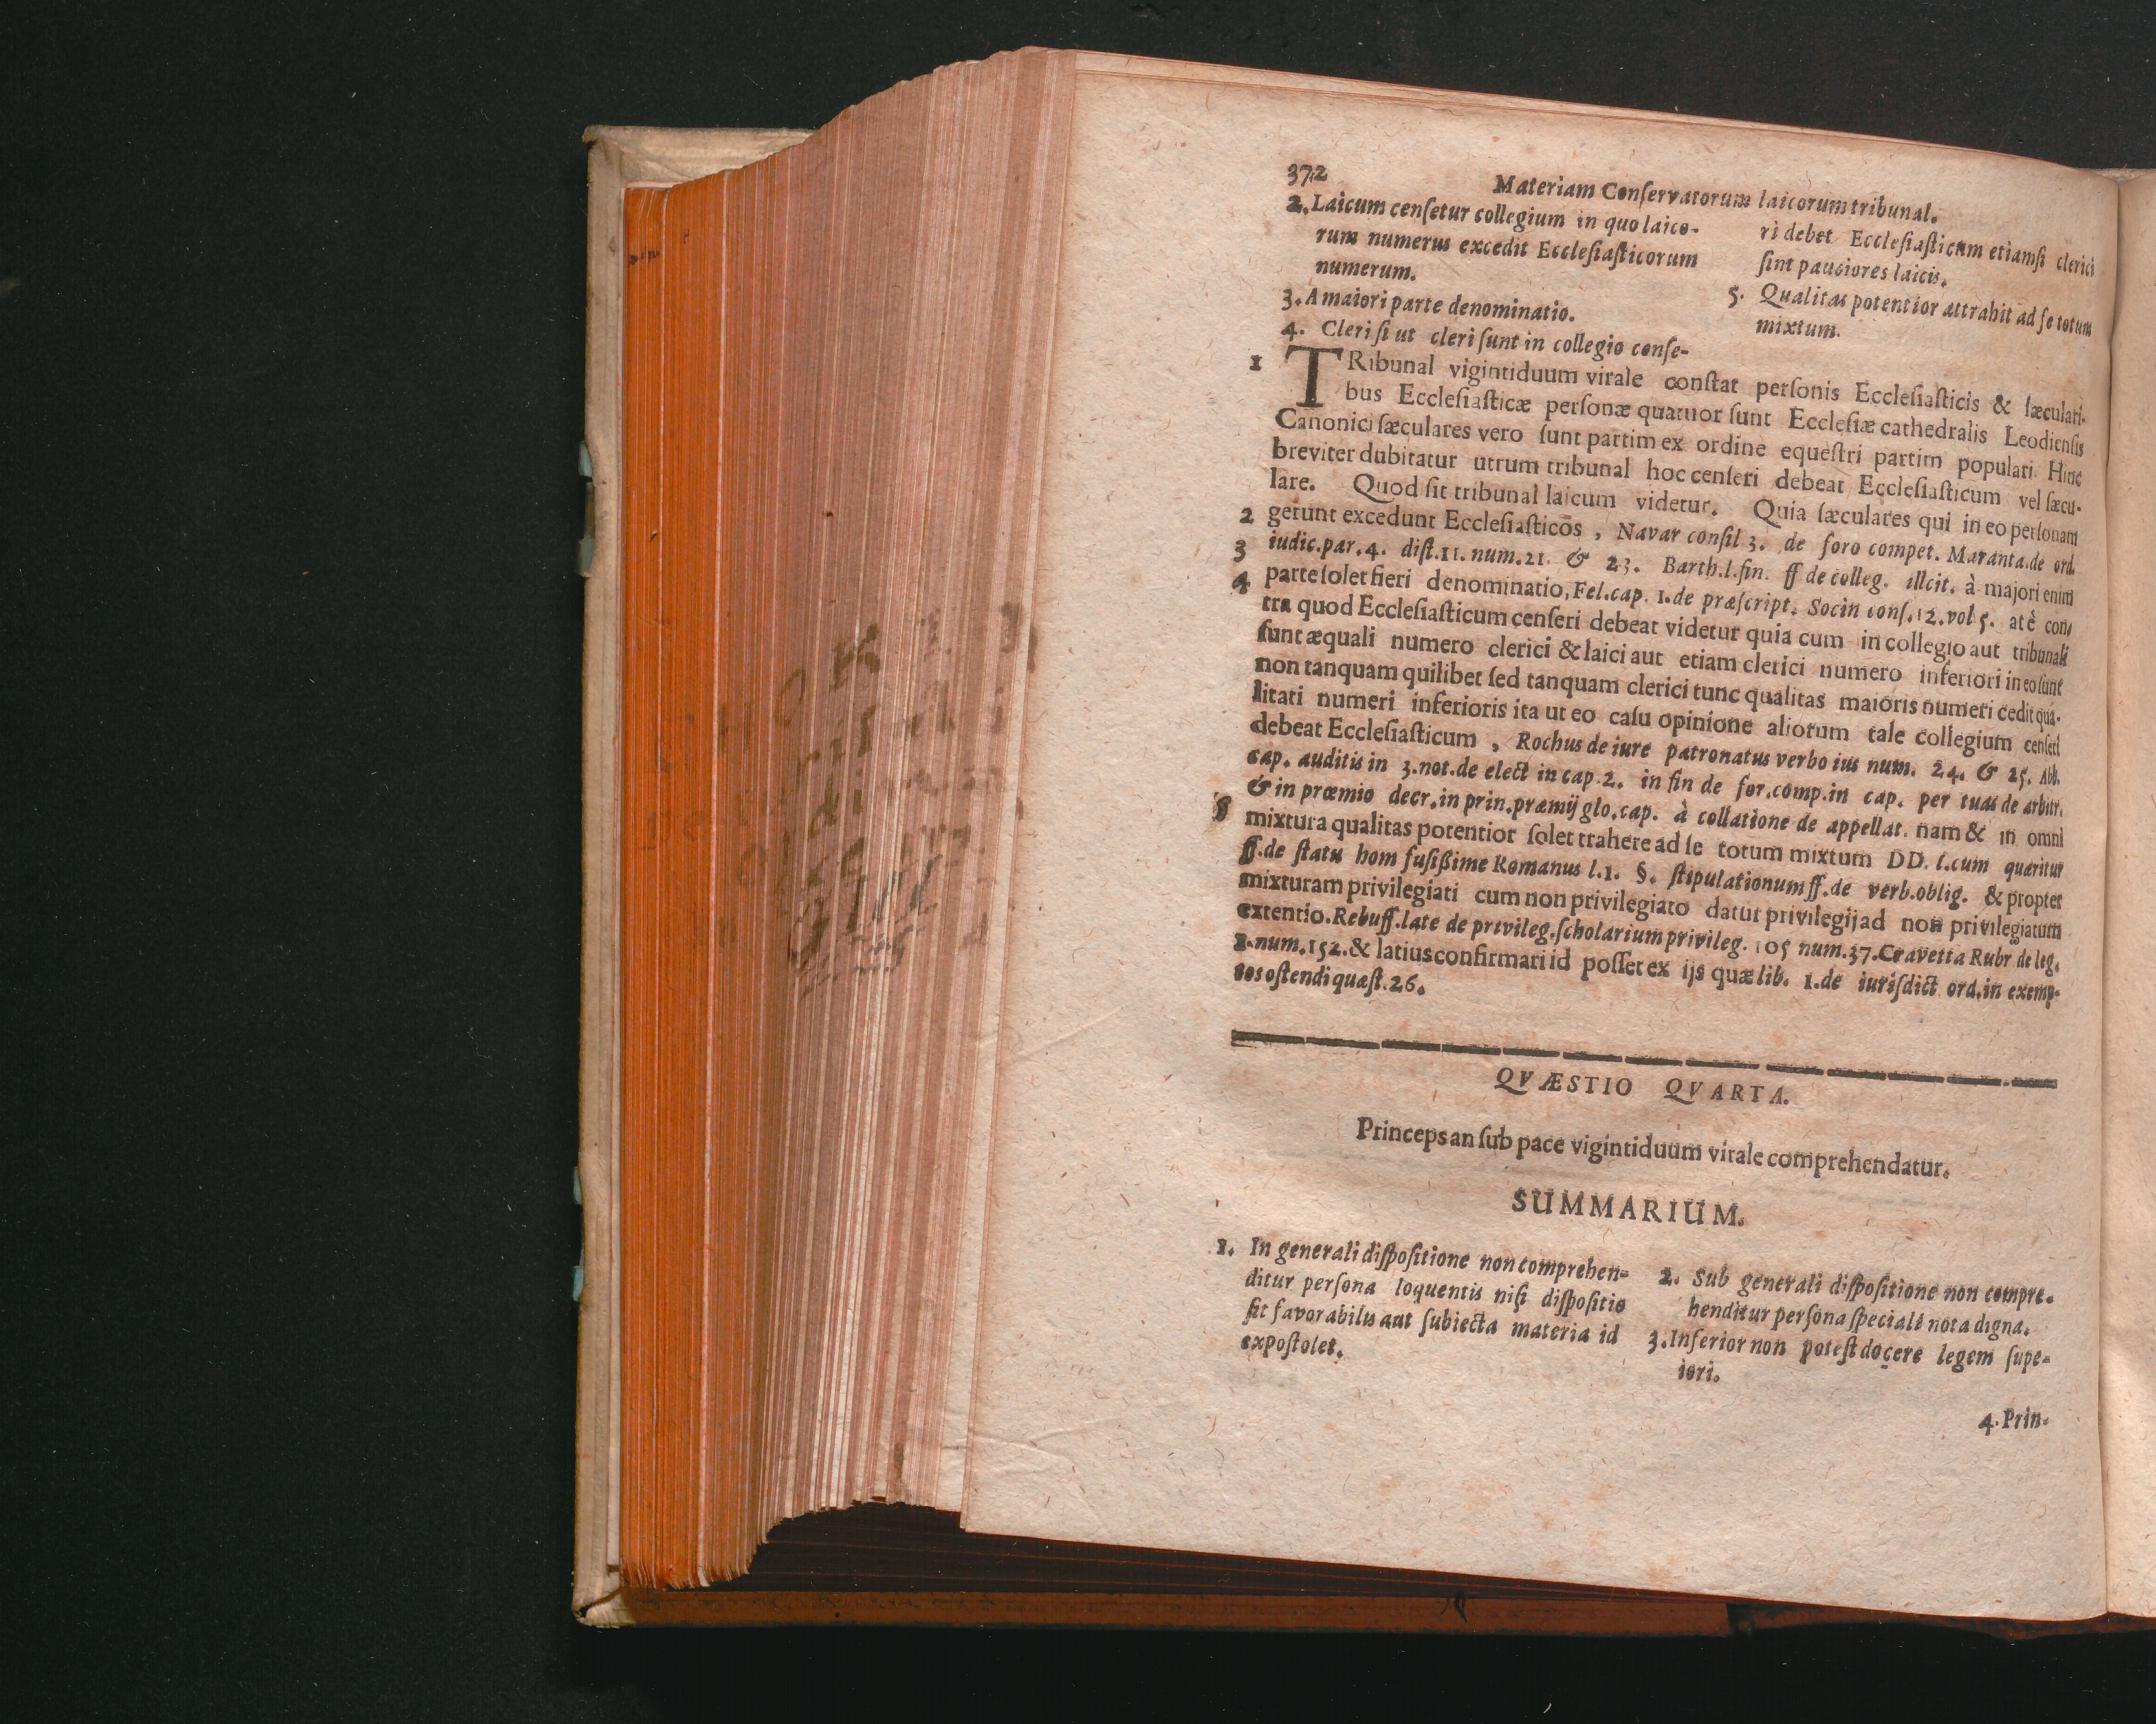 372
Materiam Conſervatorum laicorum tribunal.
2. Laicum cenſetur collegium in quo laico-
rum numerus excedit Eccleſiaſticorum
numerum.
3. A maiori parte denominatio.
4. Cleri ſi ut cleri ſunt in collegio conſe-
ri debet Eccleſiaſticum etiamſi clerici
ſint pauciores laicis.
5. Qualitas potentior attrahit ad ſe totum
mixtum.
1 TRibunal vigintiduum virale conſtat perſonis Eccleſiaſticis & ſæculari-
bus Eccleſiaſticæ perſonæ quatuor ſunt Eccleſiæ cathedralis Leodienſis
Canonici ſæculares vero ſunt partim ex ordine equeſtri partim populari Hinc
breviter dubitatur utrum tribunal hoc cenſeri debeat Eccleſiaſticum vel ſæcu-
lare. Quod ſit tribunal laicum videtur. Quia ſæculares qui in eo perſonam
2 gerunt excedunt Eccleſiaſticos, Navar conſil 3. de foro compet. Maranta.de ord.
3 iudic.par.4. diſt.11.num.21. & 23. Barth.l.fin. ff de colleg. illcit. à majori enim
4 parte ſolet fieri denominatio, Fel.cap. 1.de præſcript. Socin conſ.12.vol 5. at è con-
tra quod Eccleſiaſticum cenſeri debeat videtur quia cum in collegio aut tribunali
ſunt æquali numero clerici & laici aut etiam clerici numero inferiori in eo ſunt
non tanquam quilibet ſed tanquam clerici tunc qualitas maioris numeri cedit qua-
litati numeri inferioris ita ut eo caſu opinione aliorum tale collegium cenſeri
debeat Eccleſiaſticum, Rochus de iure patronatus verbo ius num. 24. & 25. Abb.
cap. auditis in 3.not.de elect in cap.2. in fin de for.comp.in cap. per tuas de arbitr.
& in præmio decr.in prin.præmij glo.cap. à collatione de appellat. nam & in omni
mixtura qualitas potentior ſolet trahere ad ſe totum mixtum DD. l.cum quæritur
ff.de ſtatu hom fuſißime Romanus l.1. §. ſtipulationum ff.de verb.oblig. & propter
mixturam privilegiati cum non privilegiato datur privilegij ad non privilegiatum
extentio. Rebuff.late de privileg.ſcholarium privileg. 105 num.37. Cravetta Rubr de leg.
1.num.152.& latius confirmari id poſſet ex ijs quæ lib. 1.de iuriſdict ord.in exemp-
tos oſtendi quæſt.26.
QVÆSTIO QVARTA.
Princeps an ſub pace vigintiduum virale comprehendatur.
SUMMARIUM.
1. In generali diſpoſitione non comprehen-
ditur perſona loquentis niſi diſpoſitio
ſit favorabilis aut ſubiecta materia id
expoſtolet.
2. Sub generali diſpoſitione non compre-
henditur perſona ſpeciali nota digna.
3. Inferior non poteſt docere legem ſupe-
iori.
4. Prin-